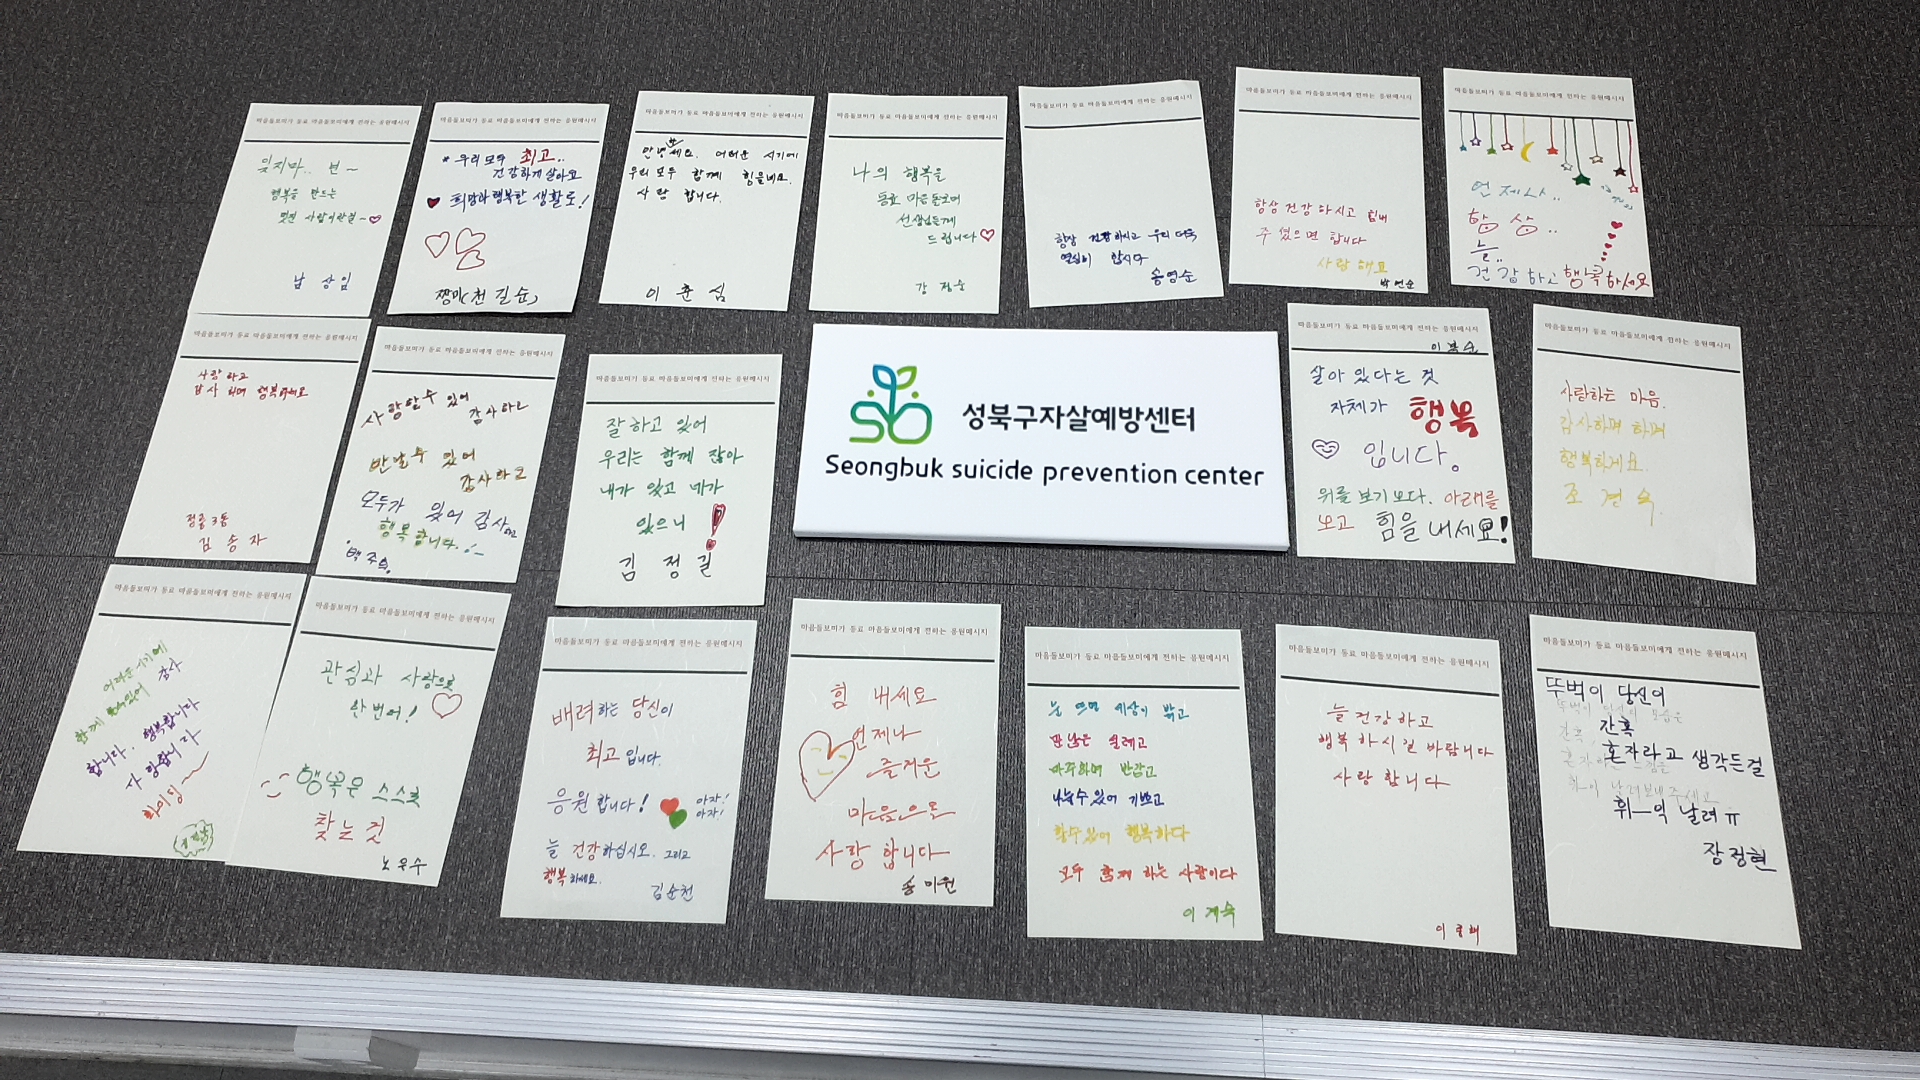 마음돌보미가 동료 마음돌보미에게 전하는 응원메시지
잊지마.. 넌 ~
행복을 만드는
멋진 사람이란걸~
남상임
마음돌보미가 동료 마음돌보미에게 전하는 응원메시지
* 우리모두 최고..
건강하게 살아요
희망과 행복한 생활도!
짱미(천길순)
마음돌보미가 동료 마음돌보미에게 전하는 응원메시지
안녕하세요. 어려운 시기에
우리 모두 함께 힘을내요.
사랑 합니다.
이춘심
마음돌보미가 동료 마음돌보미에게 전하는 응원메시지
나의 행복을
동료 마음돌보미
선생님들께
드립니다
강정순
마음돌보미가 동료 마음돌보미에게 전하는 응원메시지
항상 건강하시고 우리 더욱
열심히 합시다
송영순
마음돌보미가 동료 마음돌보미에게 전하는 응원메시지
항상 건강 하시고 힘내
주셨으면 합니다
사랑해요
박연순
마음돌보미가 동료 마음돌보미에게 전하는 응원메시지
언제나..
항상..
늘..
건강하고 행복하세요
마음돌보미가 동료 마음돌보미에게 전하는 응원메시지
사랑하고
감사하며 행복하세요
정릉3동
김송자
마음돌보미가 동료 마음돌보미에게 전하는 응원메시지
사랑할수 있어
감사하고
만날수 있어
감사하고
모두가 있어 감사하고
행복합니다.
마음돌보미가 동료 마음돌보미에게 전하는 응원메시지
잘하고 있어
우리는 함께 잖아
내가 있고 네가
있으니
김정길
성북구자살예방센터
Seongbuk suicide prevention center
마음돌보미가 동료 마음돌보미에게 전하는 응원메시지
이복순
살아 있다는 것
자체가 행복
입니다.
위를 보기 보다. 아래를
보고 힘을 내세요!
마음돌보미가 동료 마음돌보미에게 전하는 응원메시지
사랑하는 마음.
감사하며 하며
행복하게요.
마음돌보미가 동료 마음돌보미에게 전하는 응원메시지
어려운시기에
함께 할수있어 감사
합니다. 행복합니다
사랑합니다
화이팅~
마음돌보미가 동료 마음돌보미에게 전하는 응원메시지
관심과 사랑으로
한번더!
행복은 스스로
찾는것
노운수
마음돌보미가 동료 마음돌보미에게 전하는 응원메시지
배려하는 당신이
최고입니다.
응원합니다! 아자!
아자!
늘 건강하십시오. 그리고
행복하세요.
김순천
마음돌보미가 동료 마음돌보미에게 전하는 응원메시지
힘 내세요
언제나
즐거운
마음으로
사랑 합니다
송미원
마음돌보미가 동료 마음돌보미에게 전하는 응원메시지
눈 뜨면 세상이 밝고
만남은 설레고
마주하며 반갑고
나눌수있어 기쁘고
할수있어 행복하다
모두 함께 하는 사람이다
이계숙
마음돌보미가 동료 마음돌보미에게 전하는 응원메시지
늘 건강하고
행복 하시길 바랍니다
사랑 합니다
마음돌보미가 동료 마음돌보미에게 전하는 응원메시지
뚜벅이 당신이
간혹
혼자라고 생각든걸
휘—익 날려ㅠ
장정현